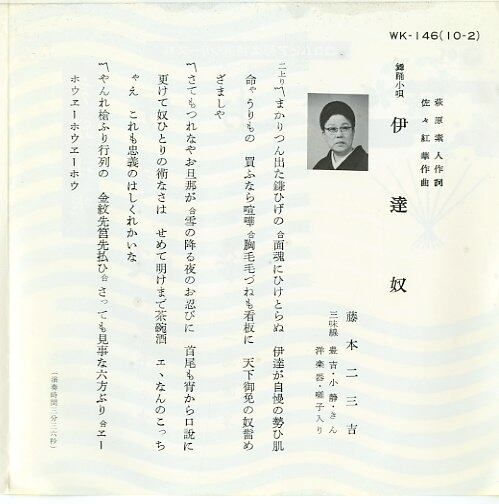 WK-146(10-2)
萩原素人作詞
佐々紅華作曲
舞踊小唄
伊達奴
藤本二三吉
三味線 豊吉・小静・きん
洋楽器・囃子入り
二上り〽まかりつん出た鎌ひげの合面魂にひけとらぬ 伊達が自慢の勢ひ肌
命ゃうりもの 買ふなら喧嘩合胸毛毛づねも看板に 天下御免の奴誉め
ざましや
〽さてもつれなやお旦那が合雪の降る夜のお忍びに 首尾も宵から口説に
更けて奴ひとりの術なさは せめて明けまで茶碗酒 エヽなんのこっち
ゃえ これも忠義のはしくれかいな
〽やんれ槍ふり行列の 金紋先箱先払ひ合さっても見事な六方ぶり合エー
ホウエーホウヱーホウ
(演奏時間三分三六秒)